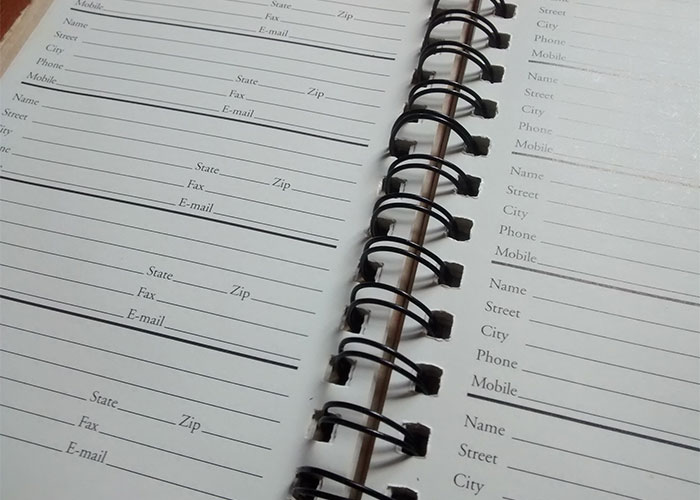 State Zip
Fax
Mobile E-mail
Name
Street
City State Zip
Phone Fax
Mobile E-mail
Name
Street
ity State Zip
ne Fax
E-mail
State Zip
Fax
E-mail
State Zip
Fax
E-mail
City
Phone
Mobile
Name
Street
City
Phone
Mobile
Name
Street
City
Phone
Mobile
Name
Street
City
Phone
Mobile
Name
Street
City